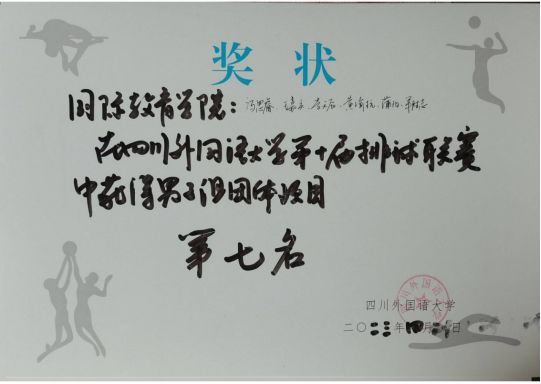 奖状
国际教育学院：
在四川外国语大学第十届排球联赛
中获得男子组团体项目
第七名
四川外国语大学
二〇二二年